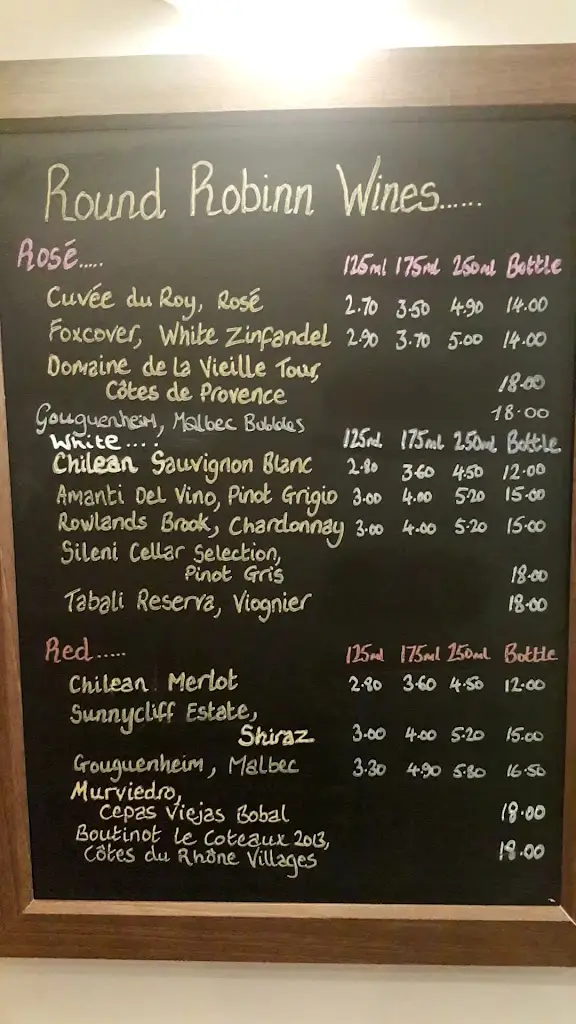 Round Robinn Wines......
Rosé..... 125ml 175ml 250ml Bottle
Cuvée du Roy, Rosé 2.70 3.50 4.90 14.00
Foxcover, White Zinfandel 2.90 3.70 5.00 14.00
Domaine de la Vieille Tour,
Côtes de Provence 18.00
Gouguenheim, Malbec Bubbles 18.00
White.... 125ml 175ml 250ml Bottle
Chilean Sauvignon Blanc 2.80 3.60 4.50 12.00
Amanti Del Vino, Pinot Grigio 3.00 4.00 5.20 15.00
Rowlands Brook, Chardonnay 3.00 4.00 5.20 15.00
Sileni Cellar Selection,
Pinot Gris 18.00
Tabali Reserva, Viognier 18.00
Red..... 125ml 175ml 250ml Bottle
Chilean Merlot 2.80 3.60 4.50 12.00
Sunnycliff Estate,
Shiraz 3.00 4.00 5.20 15.00
Gouguenheim, Malbec 3.30 4.90 5.80 16.50
Murviedro,
Cepas Viejas Bobal 18.00
Boutinot Le Coteaux 2013,
Côtes du Rhône Villages 18.00